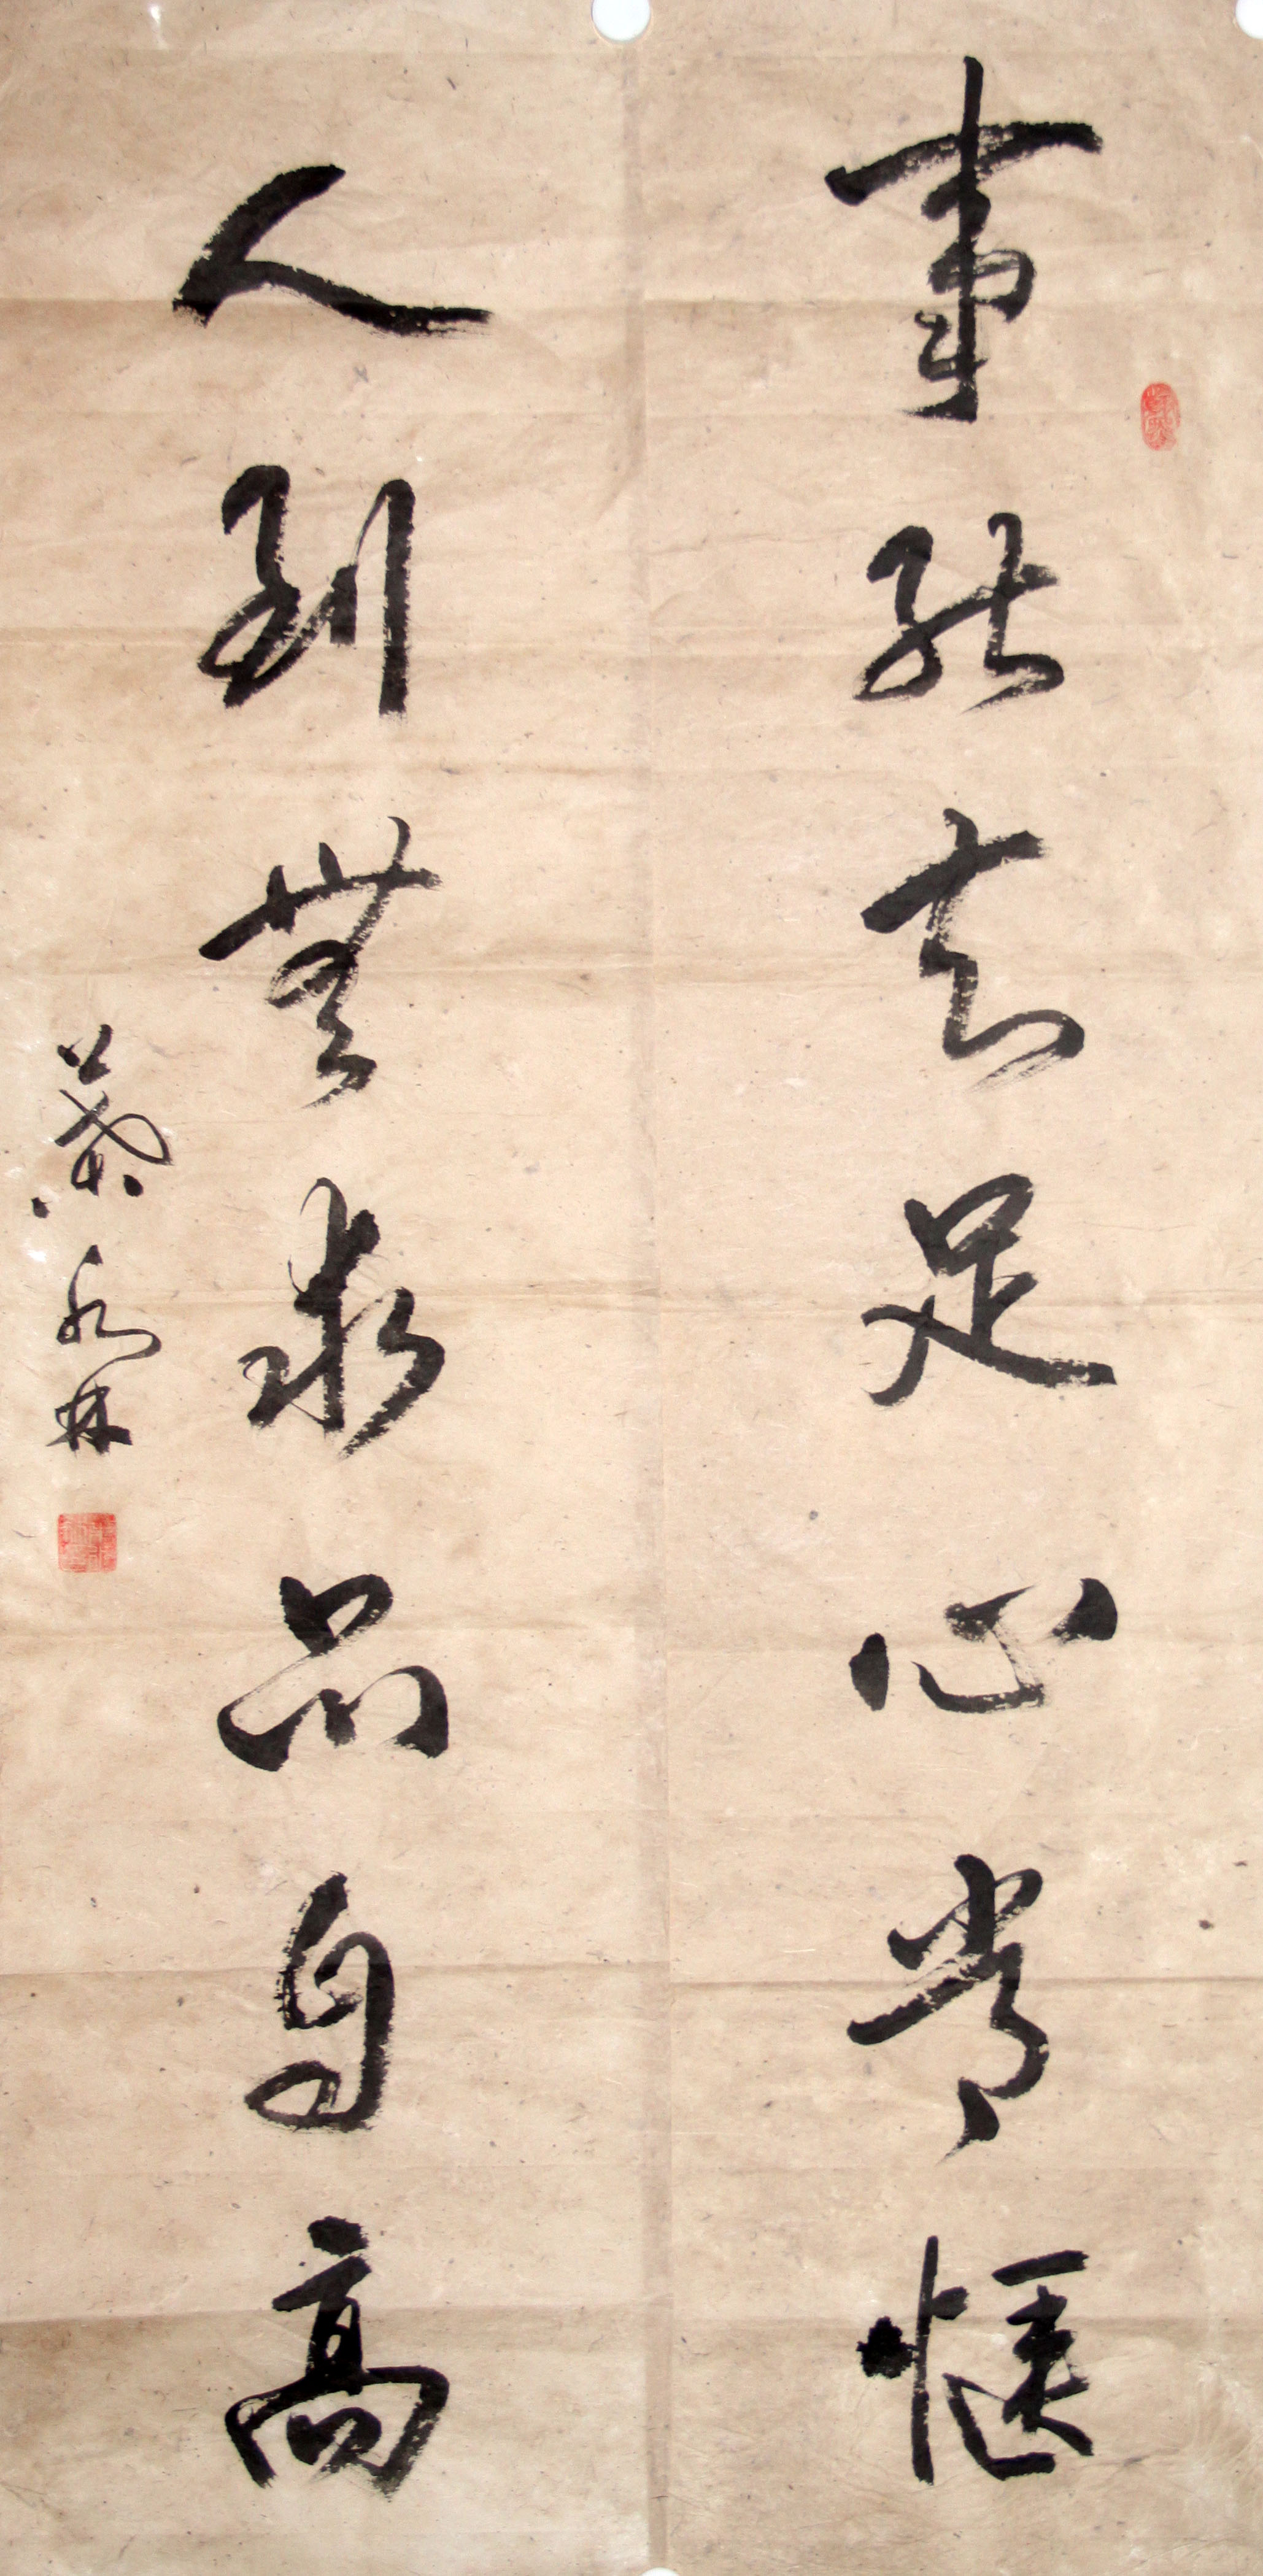 事能知足心常惬
人到無求品自高
葉永林